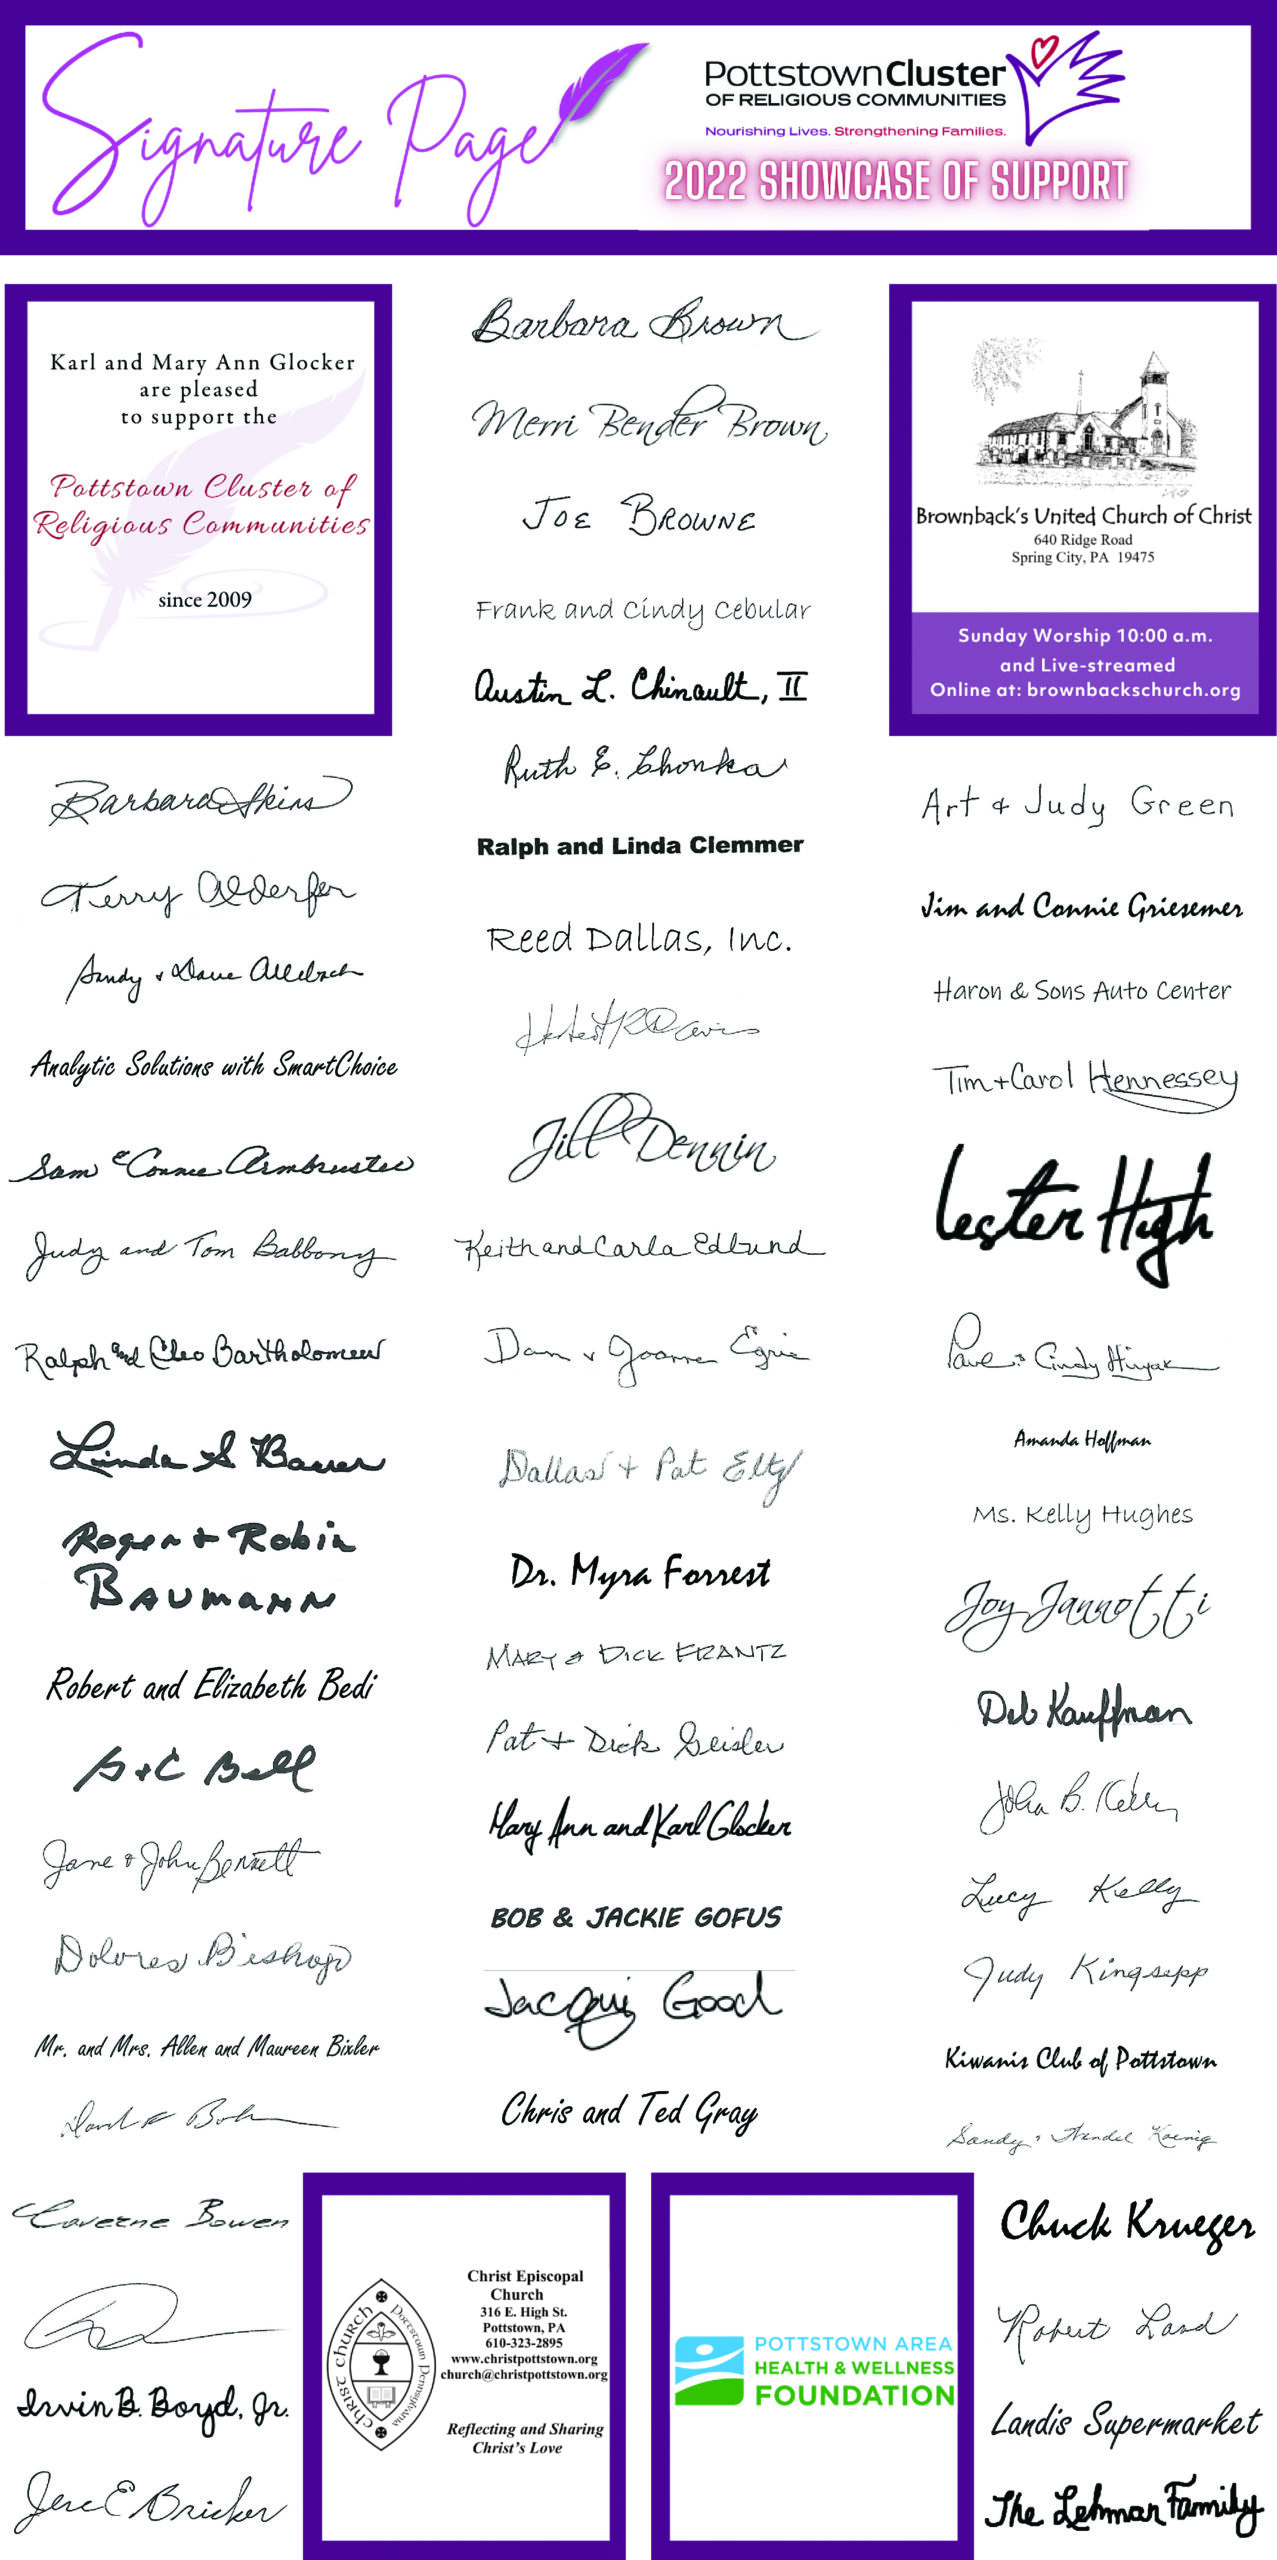 Signature Page
Pottstown Cluster
OF RELIGIOUS COMMUNITIES
Nourishing Lives. Strengthening Families.
2022 SHOWCASE OF SUPPORT
Karl and Mary Ann Glocker
are pleased
to support the
Pottstown Cluster of
Religious Communities
since 2009
Barbara Akins
Terry Alderfer
Sandy & Dave Allebach
Analytic Solutions with SmartChoice
Sam & Connie Armbruster
Judy and Tom Babbony
Ralph and Cleo Bartholomew
Linda S Bauer
Roger + Robin
BAUMANN
Robert and Elizabeth Bedi
G + C Bell
Jane & John Bennett
Dolores Bishop
Mr. and Mrs. Allen and Maureen Bixler
Laverne Bowen
Irvin B. Boyd, Jr.
Jere E Bricker
Barbara Brown
Merri Bender Brown
JOE BROWNE
Frank and Cindy Cebular
Austin L. Chinault, II
Ruth E. Chonka
Ralph and Linda Clemmer
Reed Dallas, Inc.
Herbert R Davis
Jill Dennin
Keith and Carla Edlund
Dan & Joanne
Dallas + Pat Elty
Dr. Myra Forrest
MARY & DICK FRANTZ
Pat + Dick Geisler
Mary Ann and Karl Glocker
BOB & JACKIE GOFUS
Jacqui Good
Chris and Ted Gray
Christ Church
Pottstown Pennsylvania
Christ Episcopal
Church
316 E. High St.
Pottstown, PA
610-323-2895
www.christpottstown.org
church@christpottstown.org
Reflecting and Sharing
Christ's Love
POTTSTOWN AREA
HEALTH & WELLNESS
FOUNDATION
Brownback's United Church of Christ
640 Ridge Road
Spring City, PA 19475
Sunday Worship 10:00 a.m.
and Live-streamed
Online at: brownbackschurch.org
Art & Judy Green
Jim and Connie Griesemer
Haron & Sons Auto Center
Tim + Carol Hennessey
Lester High
Cindy
Amanda Hoffman
Ms. Kelly Hughes
Joy Jannotti
Deb Kauffman
John B. Kelly
Lucy Kelly
Judy Kingsepp
Kiwanis Club of Pottstown
Sandy & Wendel Koenig
Chuck Krueger
Robert Land
Landis Supermarket
The Lehman Family